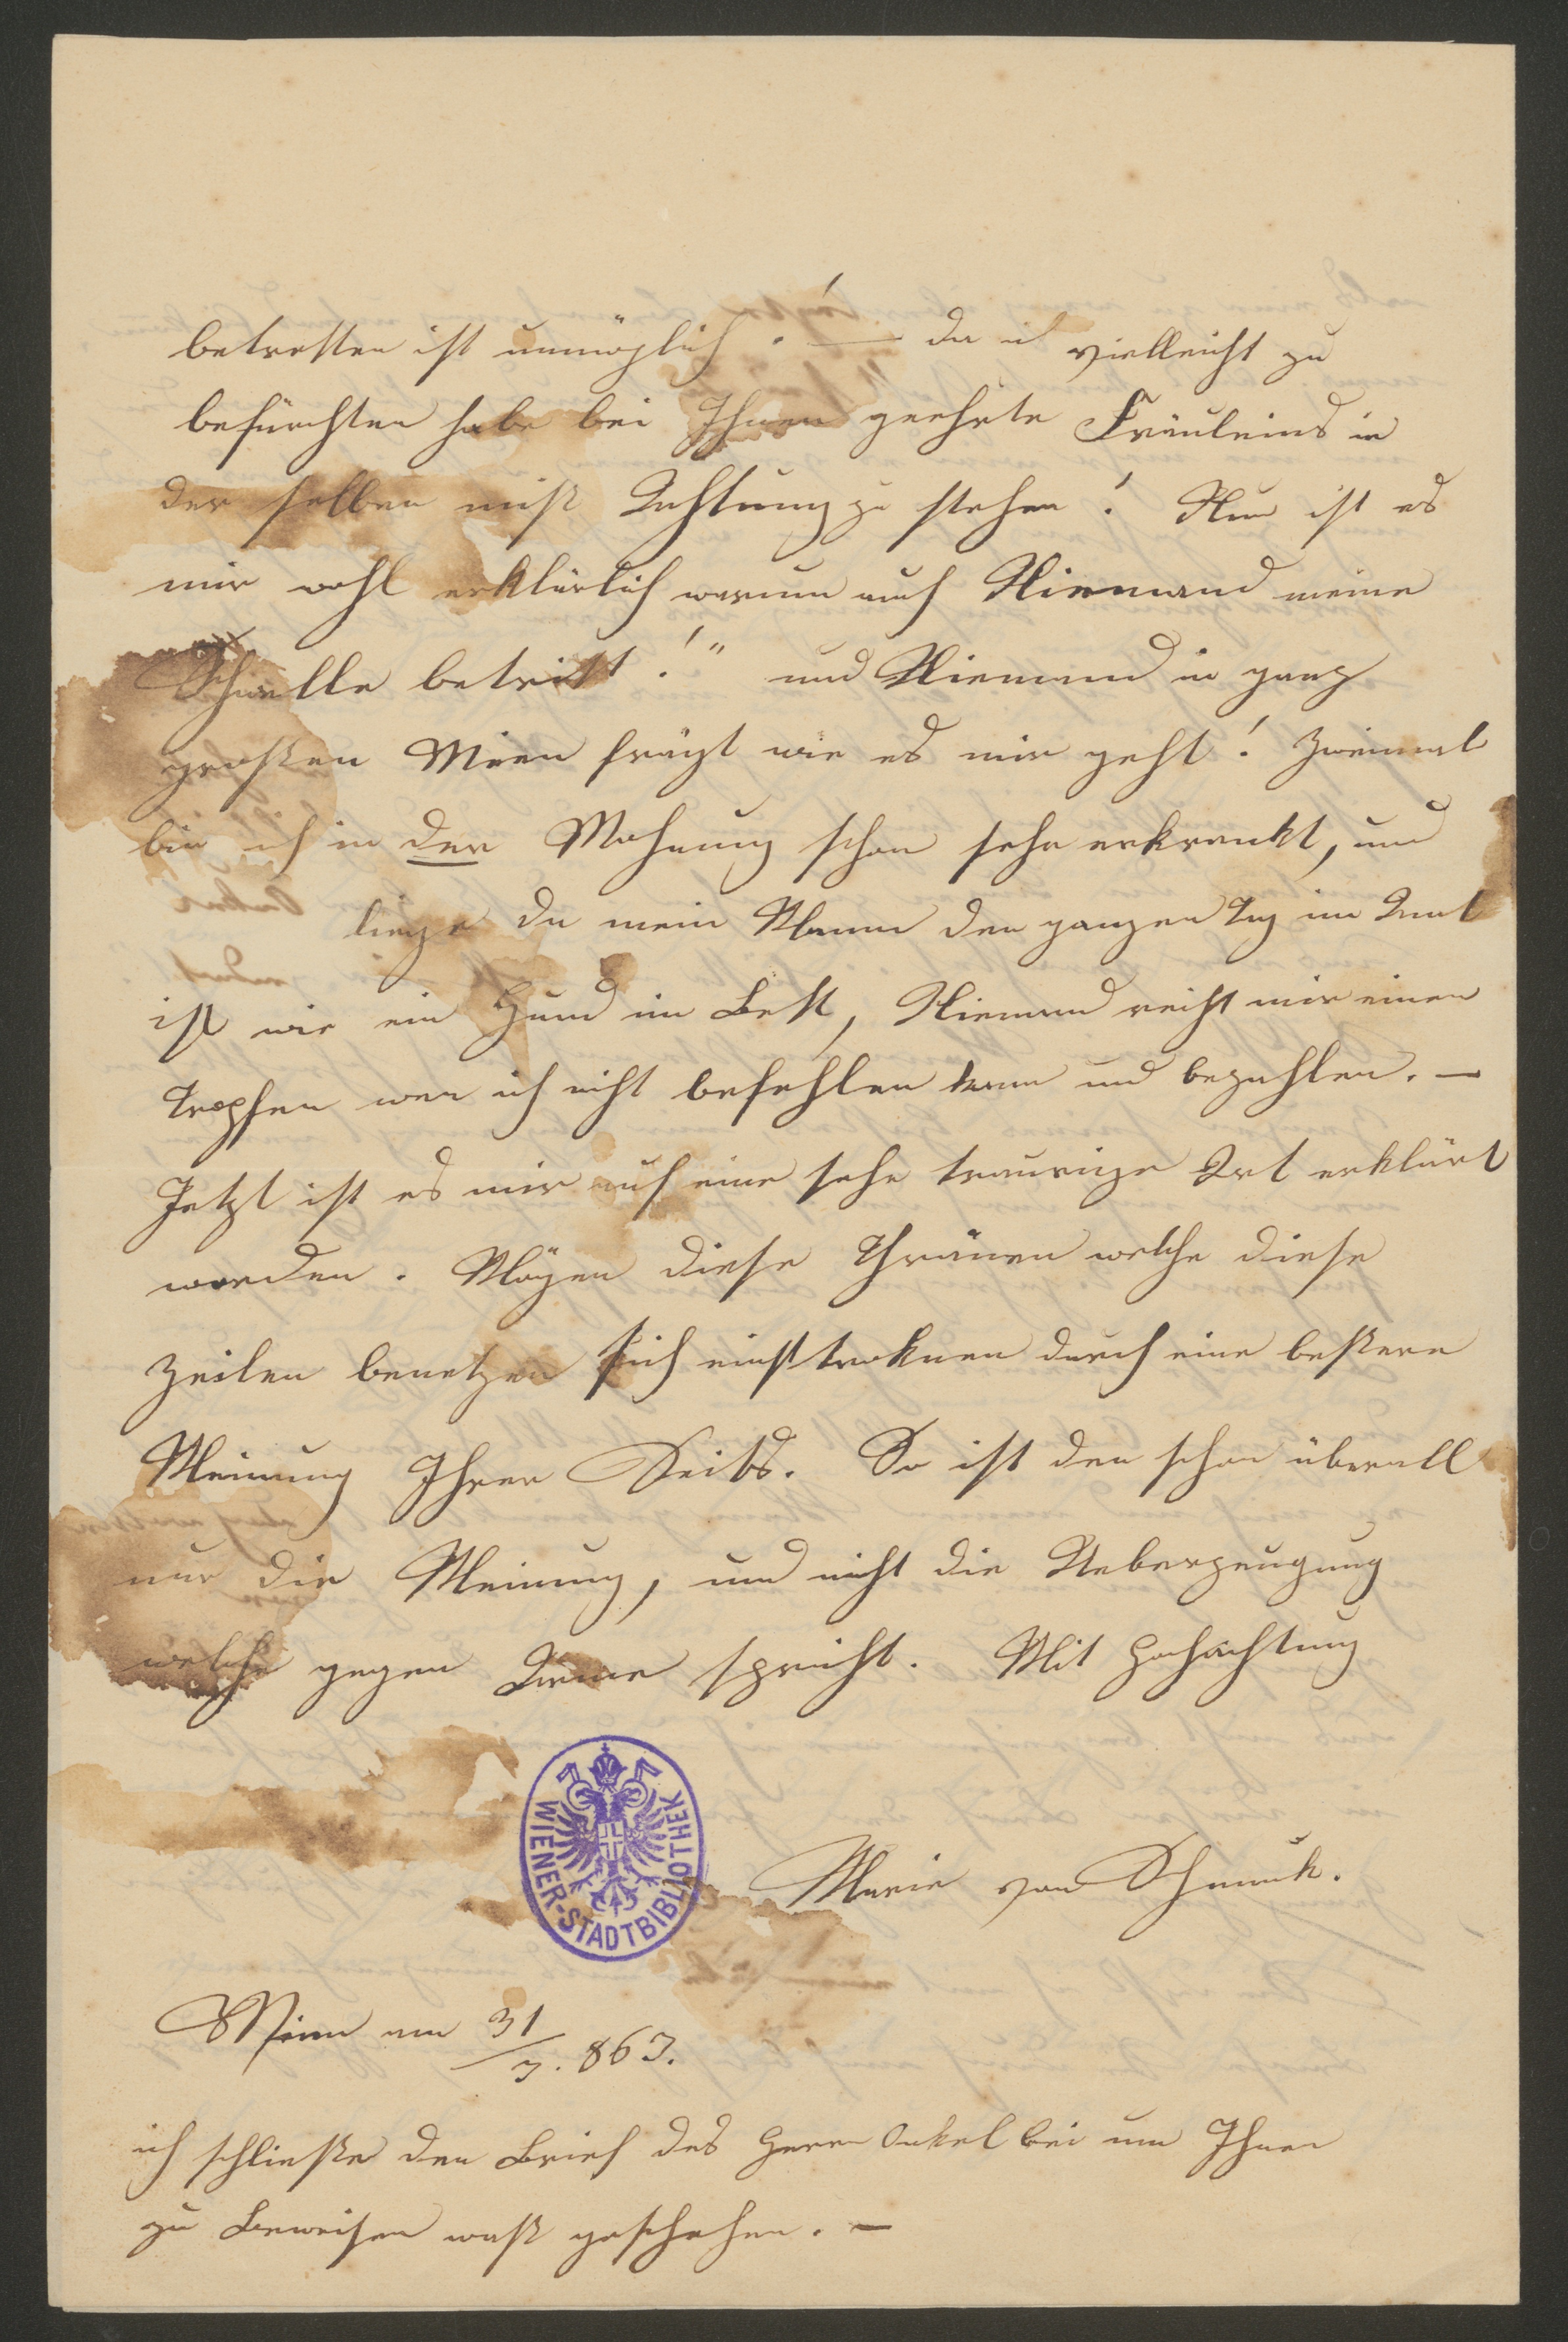 betretten ist unmöglich! — da i vielleicht zu
befürchten habe bei Ihnen geehrte Fräuleins in
der selben miß Achtung zu stehen! Nun ist es
mir wohl erklärlich warum auch Niemand meine
Schwelle betritt!" und Niemand in ganz
großen Wien frägt wie es mir geht! Zweimal
bin ich in der Wohnung schon sehr erkrankt, und
liege da mein Mann den ganzen Tag im Amt
ist wie ein Hund im Bett, Niemand reicht mir einen
Tropfen wen ich nicht befehlen kann und bezahlen. —
Jetzt ist es mir auf eine sehr traurige Art erklärt
worden. Mögen diese Thränen welche diese
Zeilen benetzen sich einst troknen durch eine beßere
Meinung Ihrer Seits. So ist den schon überall
nur die Meinung, und nicht die Ueberzeugung
welche gegen Arme spricht. Mit Hochachtung
WIENER-STADTBIBLIOTHEK
Marie von Schmuk.
Wien am 31/3. 863.
ich schließe den Brief des Herrn Onkel bei um Ihnen
zu Beweisen waß geschehen. —